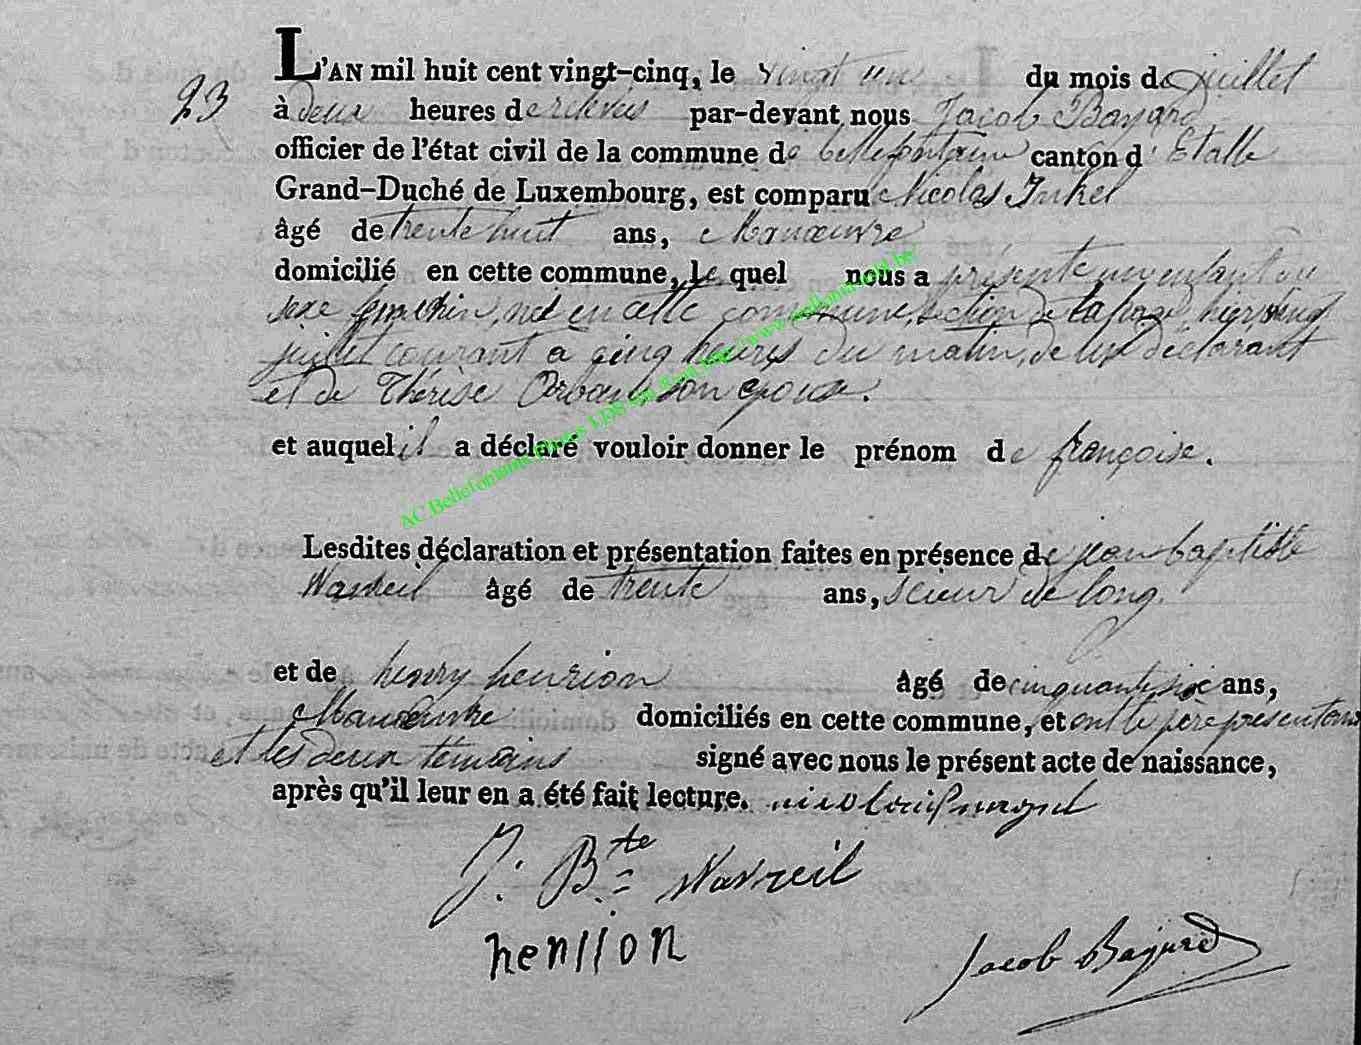 L'AN mil huit cent vingt-cinq, le vingt un du mois de juillet
23
à deux heures de relevée par-devant nous Jacob Bayard
officier de l'état civil de la commune de bellefontaine canton d'Etalle
Grand-Duché de Luxembourg, est comparu Nicolas
âgé de trente huit ans, Manœuvre
domicilié en cette commune, le quel nous a présenté un enfant du
sexe féminin, né en cette commune, section de hier, vingt
juillet courant a cinq heures du matin, de lui déclarant
et de Thérèse Orban son epouse.
et auquel il a déclaré vouloir donner le prénom de françoise.
Lesdites déclaration et présentation faites en présence de jean baptiste
Wavreil âgé de trente ans, scieur de long.
et de henry henrion âgé de cinquante six ans,
Manœuvre domiciliés en cette commune, et ont le père présentant
et les deux témoins signé avec nous le présent acte de naissance,
après qu'il leur en a été fait lecture.
J. Bte Wavreil
henrion
Jacob Bayard
AC Bellefontaine